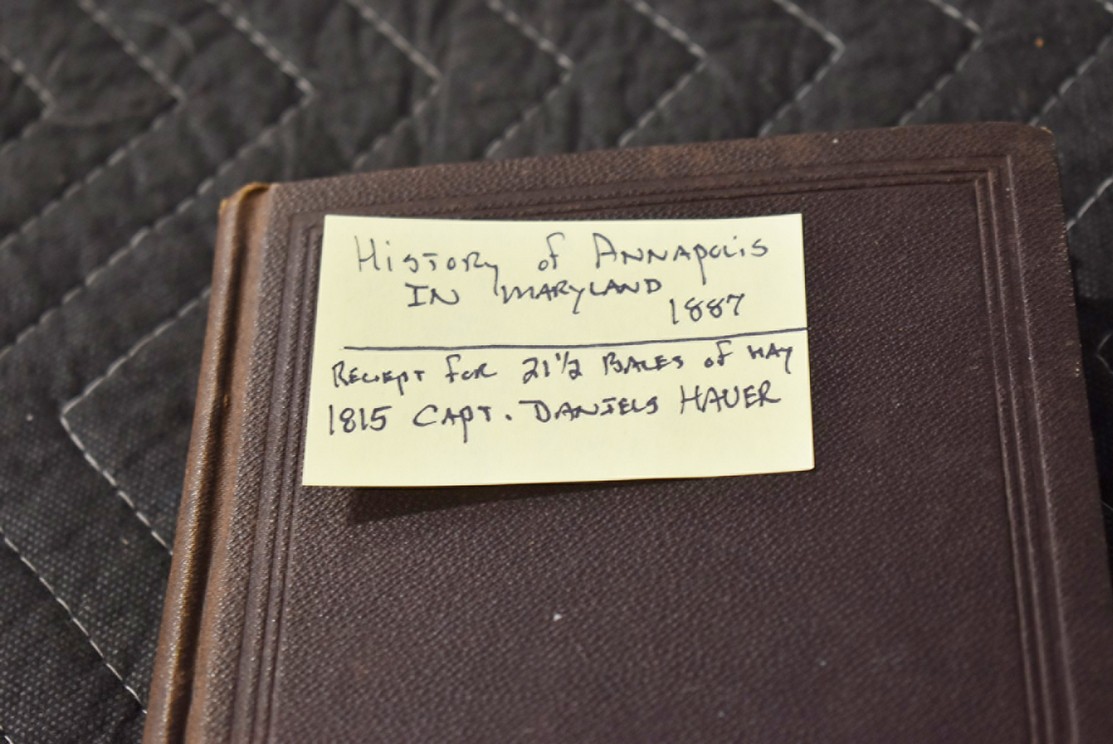 History of Annapolis
IN MARYLAND
1887
Reciept for 21 1/2 Bales of Hay
1815 Capt. Daniels Hauer